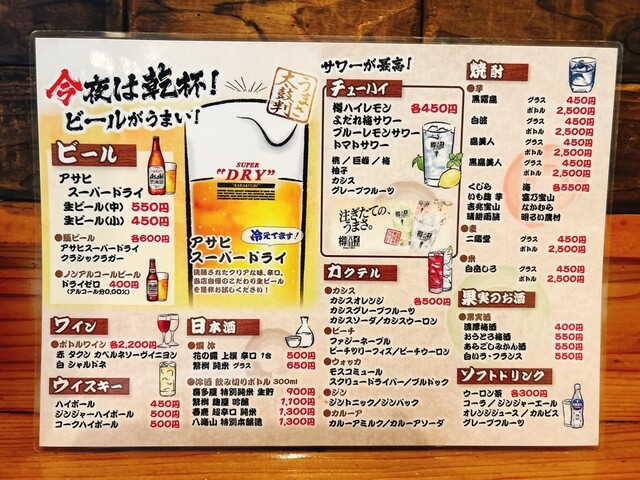 今夜は乾杯!
ビールがうまい!
うまさ
太鼓判
SUPER
"DRY"
アサヒ
スーパードライ
冷えてます!
洗練されたクリアな味、辛口。
当店自慢のこだわり生ビール
を是非お試しください!
ビール
アサヒ
スーパードライ
生ビール(中) 550円
生ビール(小) 450円
●瓶ビール 各600円
アサヒスーパードライ
クラシックラガー
●ノンアルコールビール
ドライゼロ 400円
(アルコール分0.00%)
ワイン
●ボトルワイン 各2,200円
赤 タクン カベルネソーヴィニヨン
白 シャルドネ
ウイスキー
ハイボール 450円
ジンジャーハイボール 500円
コークハイボール 500円
日本酒
●燗 冷
花の露 上撰 辛口 1合 500円
繁桝 純米 グラス 650円
●冷酒 飲み切りボトル 300ml
喜多屋 特別純米 生貯 900円
繁桝 麹屋 吟醸 1,100円
春鹿 超辛口 純米 1,300円
八海山 特別本醸造 1,300円
サワーが最高!
チューハイ
樽ハイレモン 各450円
よだれ梅サワー
ブルーレモンサワー
トマトサワー
桃/巨峰/梅
柚子
カシス
グレープフルーツ
注ぎたての、
うまさ。
カクテル
●カシス 各500円
カシスオレンジ
カシスグレープフルーツ
カシスソーダ/カシスウーロン
●ピーチ
ファジーネーブル
ピーチツリーフィズ/ピーチウーロン
●ウォッカ
モスコミュール
スクリュードライバー/ブルドック
●ジン
ジントニック/ジンバック
●カルーア
カルーアミルク/カルーアソーダ
焼酎
●芋
黒霧島 グラス 450円
ボトル 2,500円
白波 グラス 450円
ボトル 2,500円
島美人 グラス 450円
ボトル 2,500円
黒島美人 グラス 450円
ボトル 2,500円
くじら 海 各550円
いも麹 芋 富乃宝山
吉兆宝山 なかむら
晴耕雨読 明るい農村
●麦
二階堂 グラス 450円
ボトル 2,500円
●米
白岳しろ グラス 450円
ボトル 2,500円
果実のお酒
●果実酒
濃厚梅酒 400円
おうとろ梅酒 550円
あらごしみかん酒 550円
白いラ・フランス 550円
ソフトドリンク
ウーロン茶 各300円
コーラ/ジンジャーエール
オレンジジュース/カルピス
グレープフルーツ